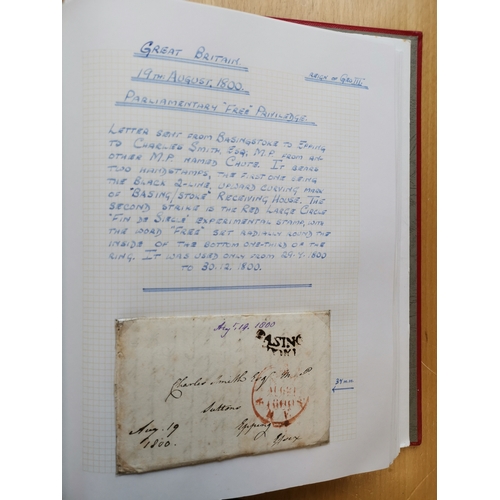 GREAT BRITAIN.
19TH AUGUST, 1800.
REIGN OF GEO III
PARLIAMENTARY "FREE" PRIVILEDGE.
LETTER SENT FROM BASINGSTOKE TO EPPING
TO CHARLES SMITH ESQ. M.P. FROM AN-
OTHER M.P. NAMED CHUTE. IT BEARS
TWO HANDSTAMPS, THE FIRST ONE BEING
THE BLACK 2-LINE, UPWARD CURVING MARK
OF "BASING/STOKE" RECEIVING HOUSE. THE
SECOND STRIKE IS THE RED LARGE CIRCLE
"FIN DE SIECLE" EXPERIMENTAL STAMP, WITH
THE WORD "FREE" SET RADIALLY ROUND THE
INSIDE OF THE BOTTOM ONE-THIRD OF THE
RING. IT WAS USED ONLY FROM 29.4.1800
TO 30.12.1800.
Augt. 19. 1800
BASING
Charles Smith Esqr. M.P.
35mm
Suttons
Epping
Aug. 19
1800.
Essex